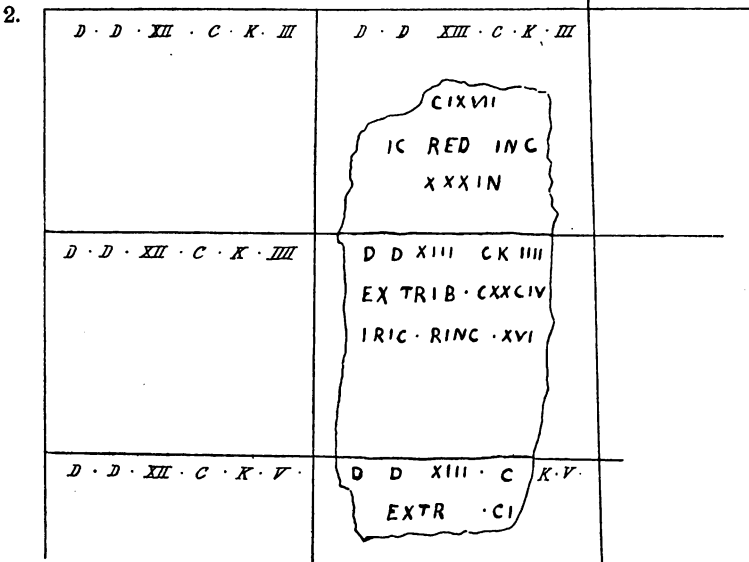 2.
D · D · XII · C · K · III
D · D XIII · C · K · III
CIXVII
IC RED INC
XXXIN
D · D · XII · C · K · IIII
D D XIII CK IIII
EX TRIB · CXXCIV
IRIC · RINC · XVI
D · D · XII · C · K · V ·
D D XIII · C K · V ·
EXTR · CI